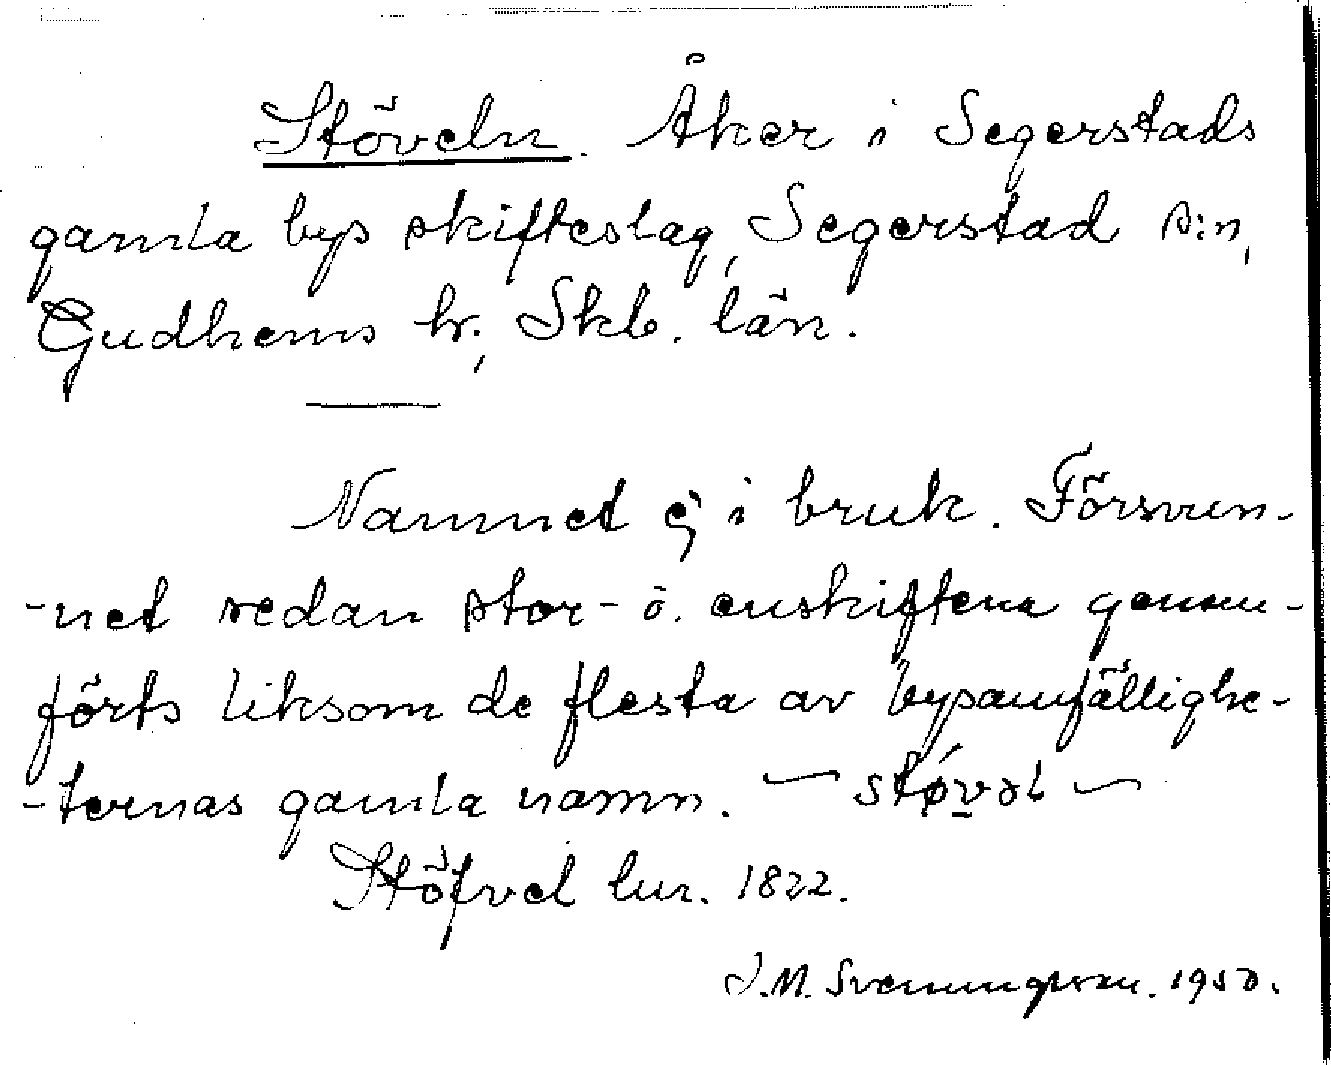 Stöveln. Åker i Segerstads
gamla bys skifteslag, Segerstad s:n,
Gudhems hr., Skb. län.
Namnet ej i bruk. Försvun-
-net sedan stor- o. enskiftena genom-
förts liksom de flesta av bysamfällighe-
-ternas gamla namn. — stǿvəl —
Stöfvel lur. 1822.
J. M. Svenningsson. 1950.